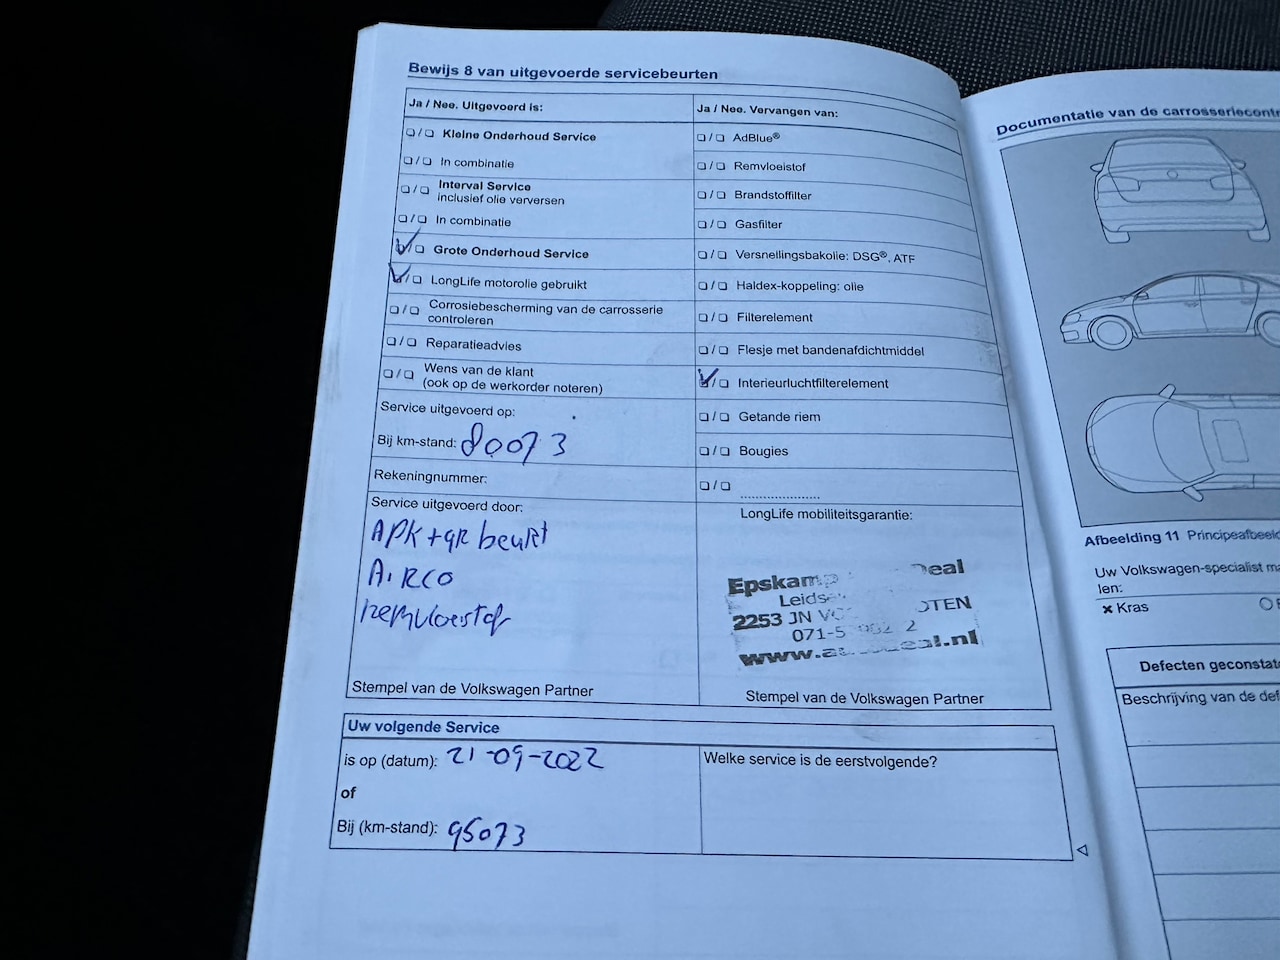 Bewijs 8 van uitgevoerde servicebeurten
Ja / Nee. Uitgevoerd is:
❏ / ❏ Kleine Onderhoud Service
❏ / ❏ In combinatie
❏ / ❏ Interval Service
inclusief olie verversen
❏ / ❏ In combinatie
✓ / ❏ Grote Onderhoud Service
✓ / ❏ LongLife motorolie gebruikt
❏ / ❏ Corrosiebescherming van de carrosserie
controleren
❏ / ❏ Reparatieadvies
❏ / ❏ Wens van de klant
(ook op de werkorder noteren)
Service uitgevoerd op:
Bij km-stand: 80073
Rekeningnummer:
Service uitgevoerd door:
APK + gR beurt
AIRCO
remvloeistof
Stempel van de Volkswagen Partner
Ja / Nee. Vervangen van:
❏ / ❏ AdBlue®
❏ / ❏ Remvloeistof
❏ / ❏ Brandstoffilter
❏ / ❏ Gasfilter
❏ / ❏ Versnellingsbakolie: DSG®, ATF
❏ / ❏ Haldex-koppeling: olie
❏ / ❏ Filterelement
❏ / ❏ Flesje met bandenafdichtmiddel
✓ / ❏ Interieurluchtfilterelement
❏ / ❏ Getande riem
❏ / ❏ Bougies
❏ / ❏ .....................
LongLife mobiliteitsgarantie:
Epskamp Deal
2253 JN
071-5
www.autodeal.nl
Stempel van de Volkswagen Partner
Uw volgende Service
is op (datum): 21-09-2022
of
Bij (km-stand): 95073
Welke service is de eerstvolgende?
Documentatie van de carrosseriecontr
Afbeelding 11 Principeafbeeld
Uw Volkswagen-specialist ma
len:
× Kras
Defecten geconstate
Beschrijving van de def